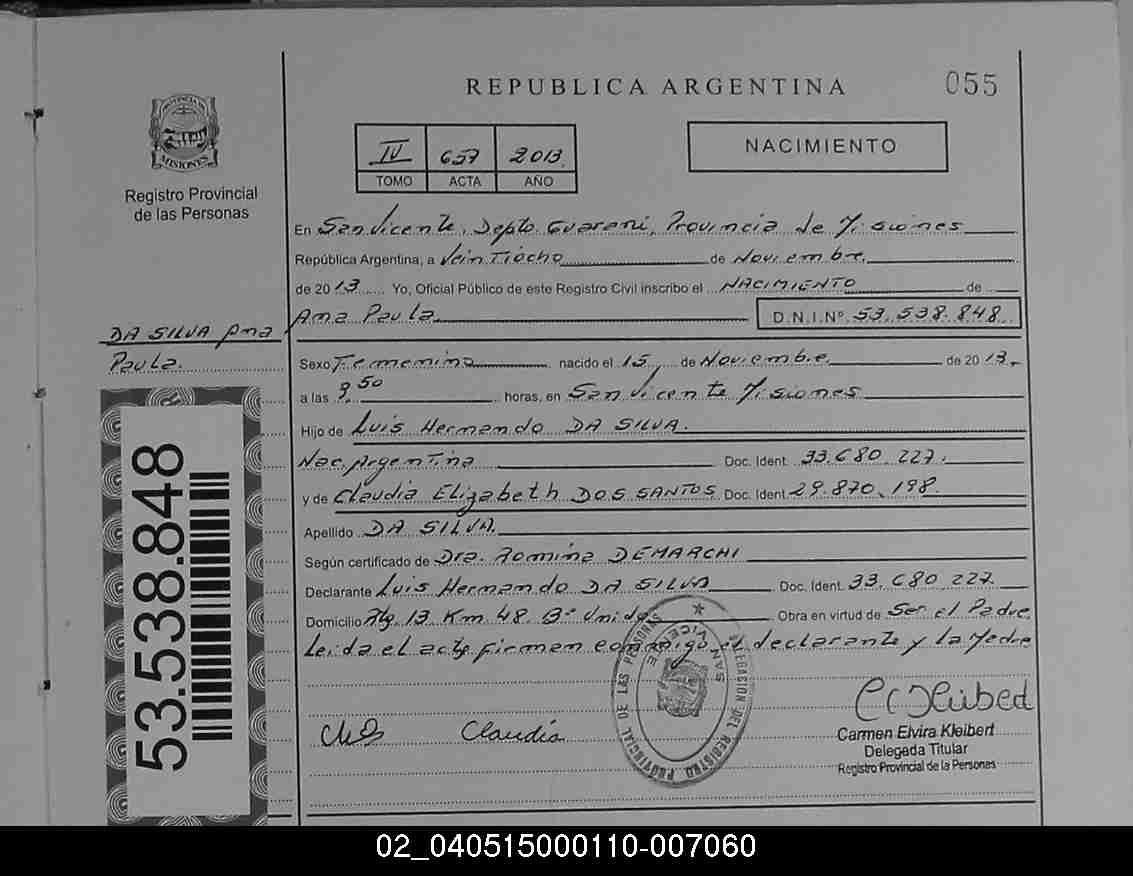 REPUBLICA ARGENTINA
055
PROVINCIA DE
MISIONES
Registro Provincial
de las Personas
IV 657 2013
TOMO ACTA AÑO
NACIMIENTO
En San Vicente, Depto. Guarani, Provincia de Misiones
República Argentina, a VeinTiocho de Noviembre
de 2013 Yo, Oficial Público de este Registro Civil inscribo el NACIMIENTO de
DA SILVA Ana
Paula.
Ana Paula. D.N.I.Nº 53.538.848
Sexo Femenino nacido el 15 de Noviembre de 2013.
a las 9,50 horas, en San Vicente Misiones
Hijo de Luis Hernando DA SILVA.
Nac. ArgenTina Doc. Ident. 33.680.227.
y de Claudia Elizabeth DOS SANTOS. Doc. Ident. 29.870.198.
Apellido DA SILVA.
Según certificado de Dra. Romina DEMARCHI
Declarante Luis Hernando DA SILVA Doc. Ident. 33.680.227.
Domicilio Km. 48. Bº Unido Obra en virtud de Ser el Padre
Leida el acta firman conmigo el declarante y La Madre
53.538.848
DELEGACION DEL REGISTRO PROVINCIAL DE LAS PERSONAS
SAN VICENTE
Claudia
Carmen Elvira Kleibert
Delegada Titular
Registro Provincial de la Personas
02_040515000110-007060